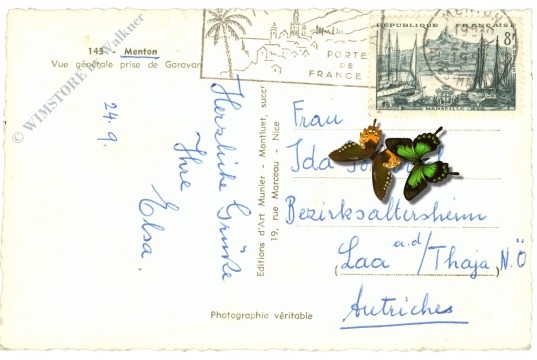 143 - Menton
Vue générale prise de Garavan
© WIMSTORE Walkner
PORTE
DE
FRANCE
MENTON
REPUBLIQUE FRANÇAISE
8F
MARSEILLE
24.9.
Herzliche Grüße
Ihre
Elsa.
Editions d'Art Munier - Montluet, succr
19, rue Marceau - Nice
Frau
Ida
Bezirksaltersheim
Laa a.d/Thaja N.Ö
Autriches
Photographie véritable